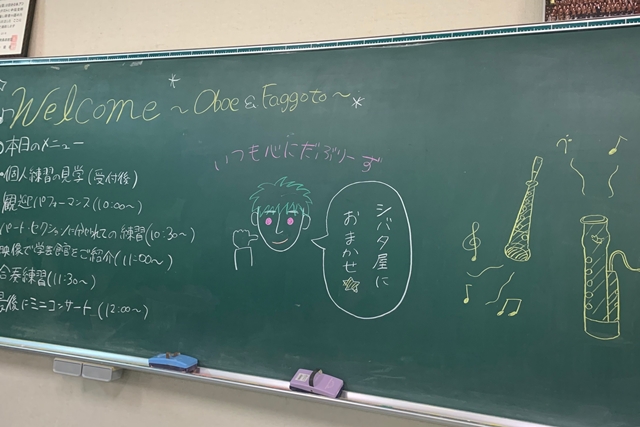 Welcome ~Oboe & Faggoto~
本日のメニュー
・個人練習の見学(受付後)
歓迎パフォーマンス(10:00~)
パート・セクションに分かれての練習(10:30~)
映像で学芸館をご紹介(11:00~)
合奏練習(11:30~)
最後にミニコンサート(12:00~)
いつも心にだぶりーず
シバタ屋に
おまかせ☆